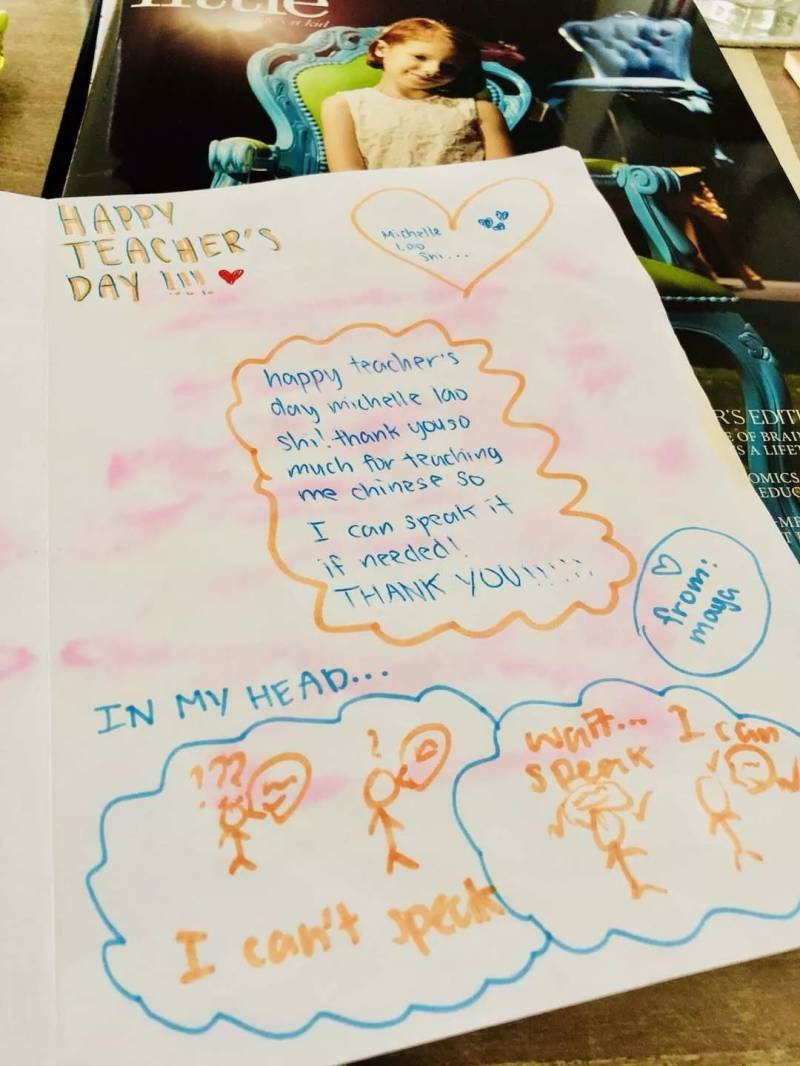 little
HAPPY
TEACHER'S
DAY !!!!
Michelle
Lao
Shi...
happy teacher's
day michelle lao
shi! thank you so
much for teaching
me chinese so
I can speak it
if needed!
THANK YOU!!!!!!
from:
maya
IN MY HEAD...
???
?
I can't speak
wait... I can
speak
R'S EDITI
E OF BRAIN
S A LIFET
OMICS
EDUC